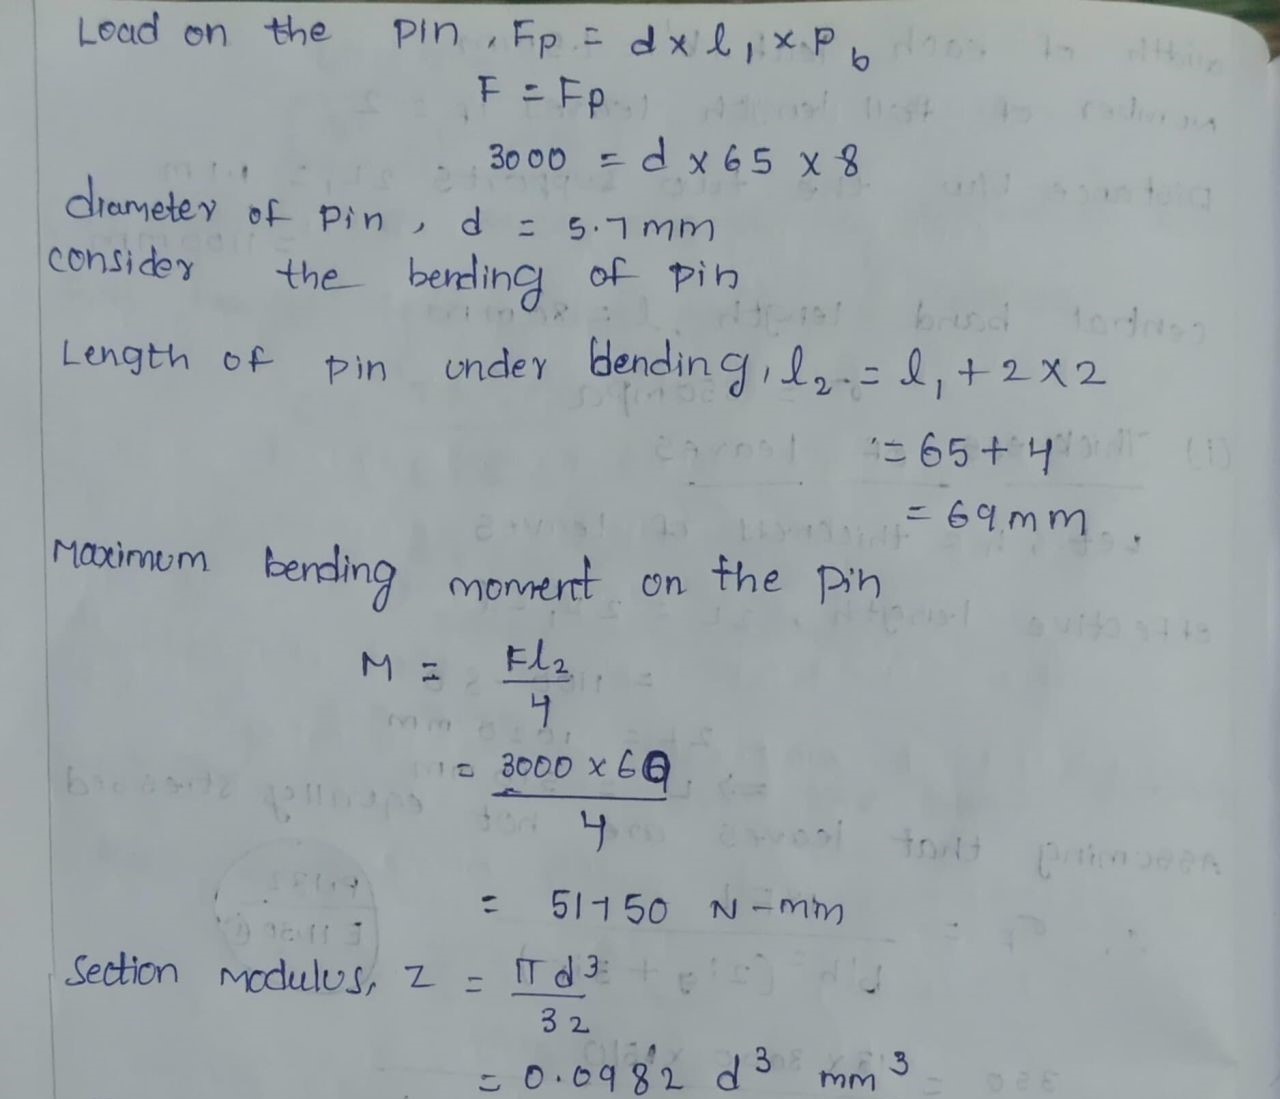 Load on the pin, Fp = d x l₁ x Pb
F = Fp
3000 = d x 65 x 8
diameter of pin, d = 5.7mm
consider the bending of pin
Length of pin under bending, l₂ = l₁ + 2 x 2
= 65 + 4
= 69 mm.
Maximum bending moment on the pin
M = Fl₂/4
= 3000 x 69/4
= 51750 N-mm
Section Modulus, Z = πd³/32
= 0.0982 d³ mm³